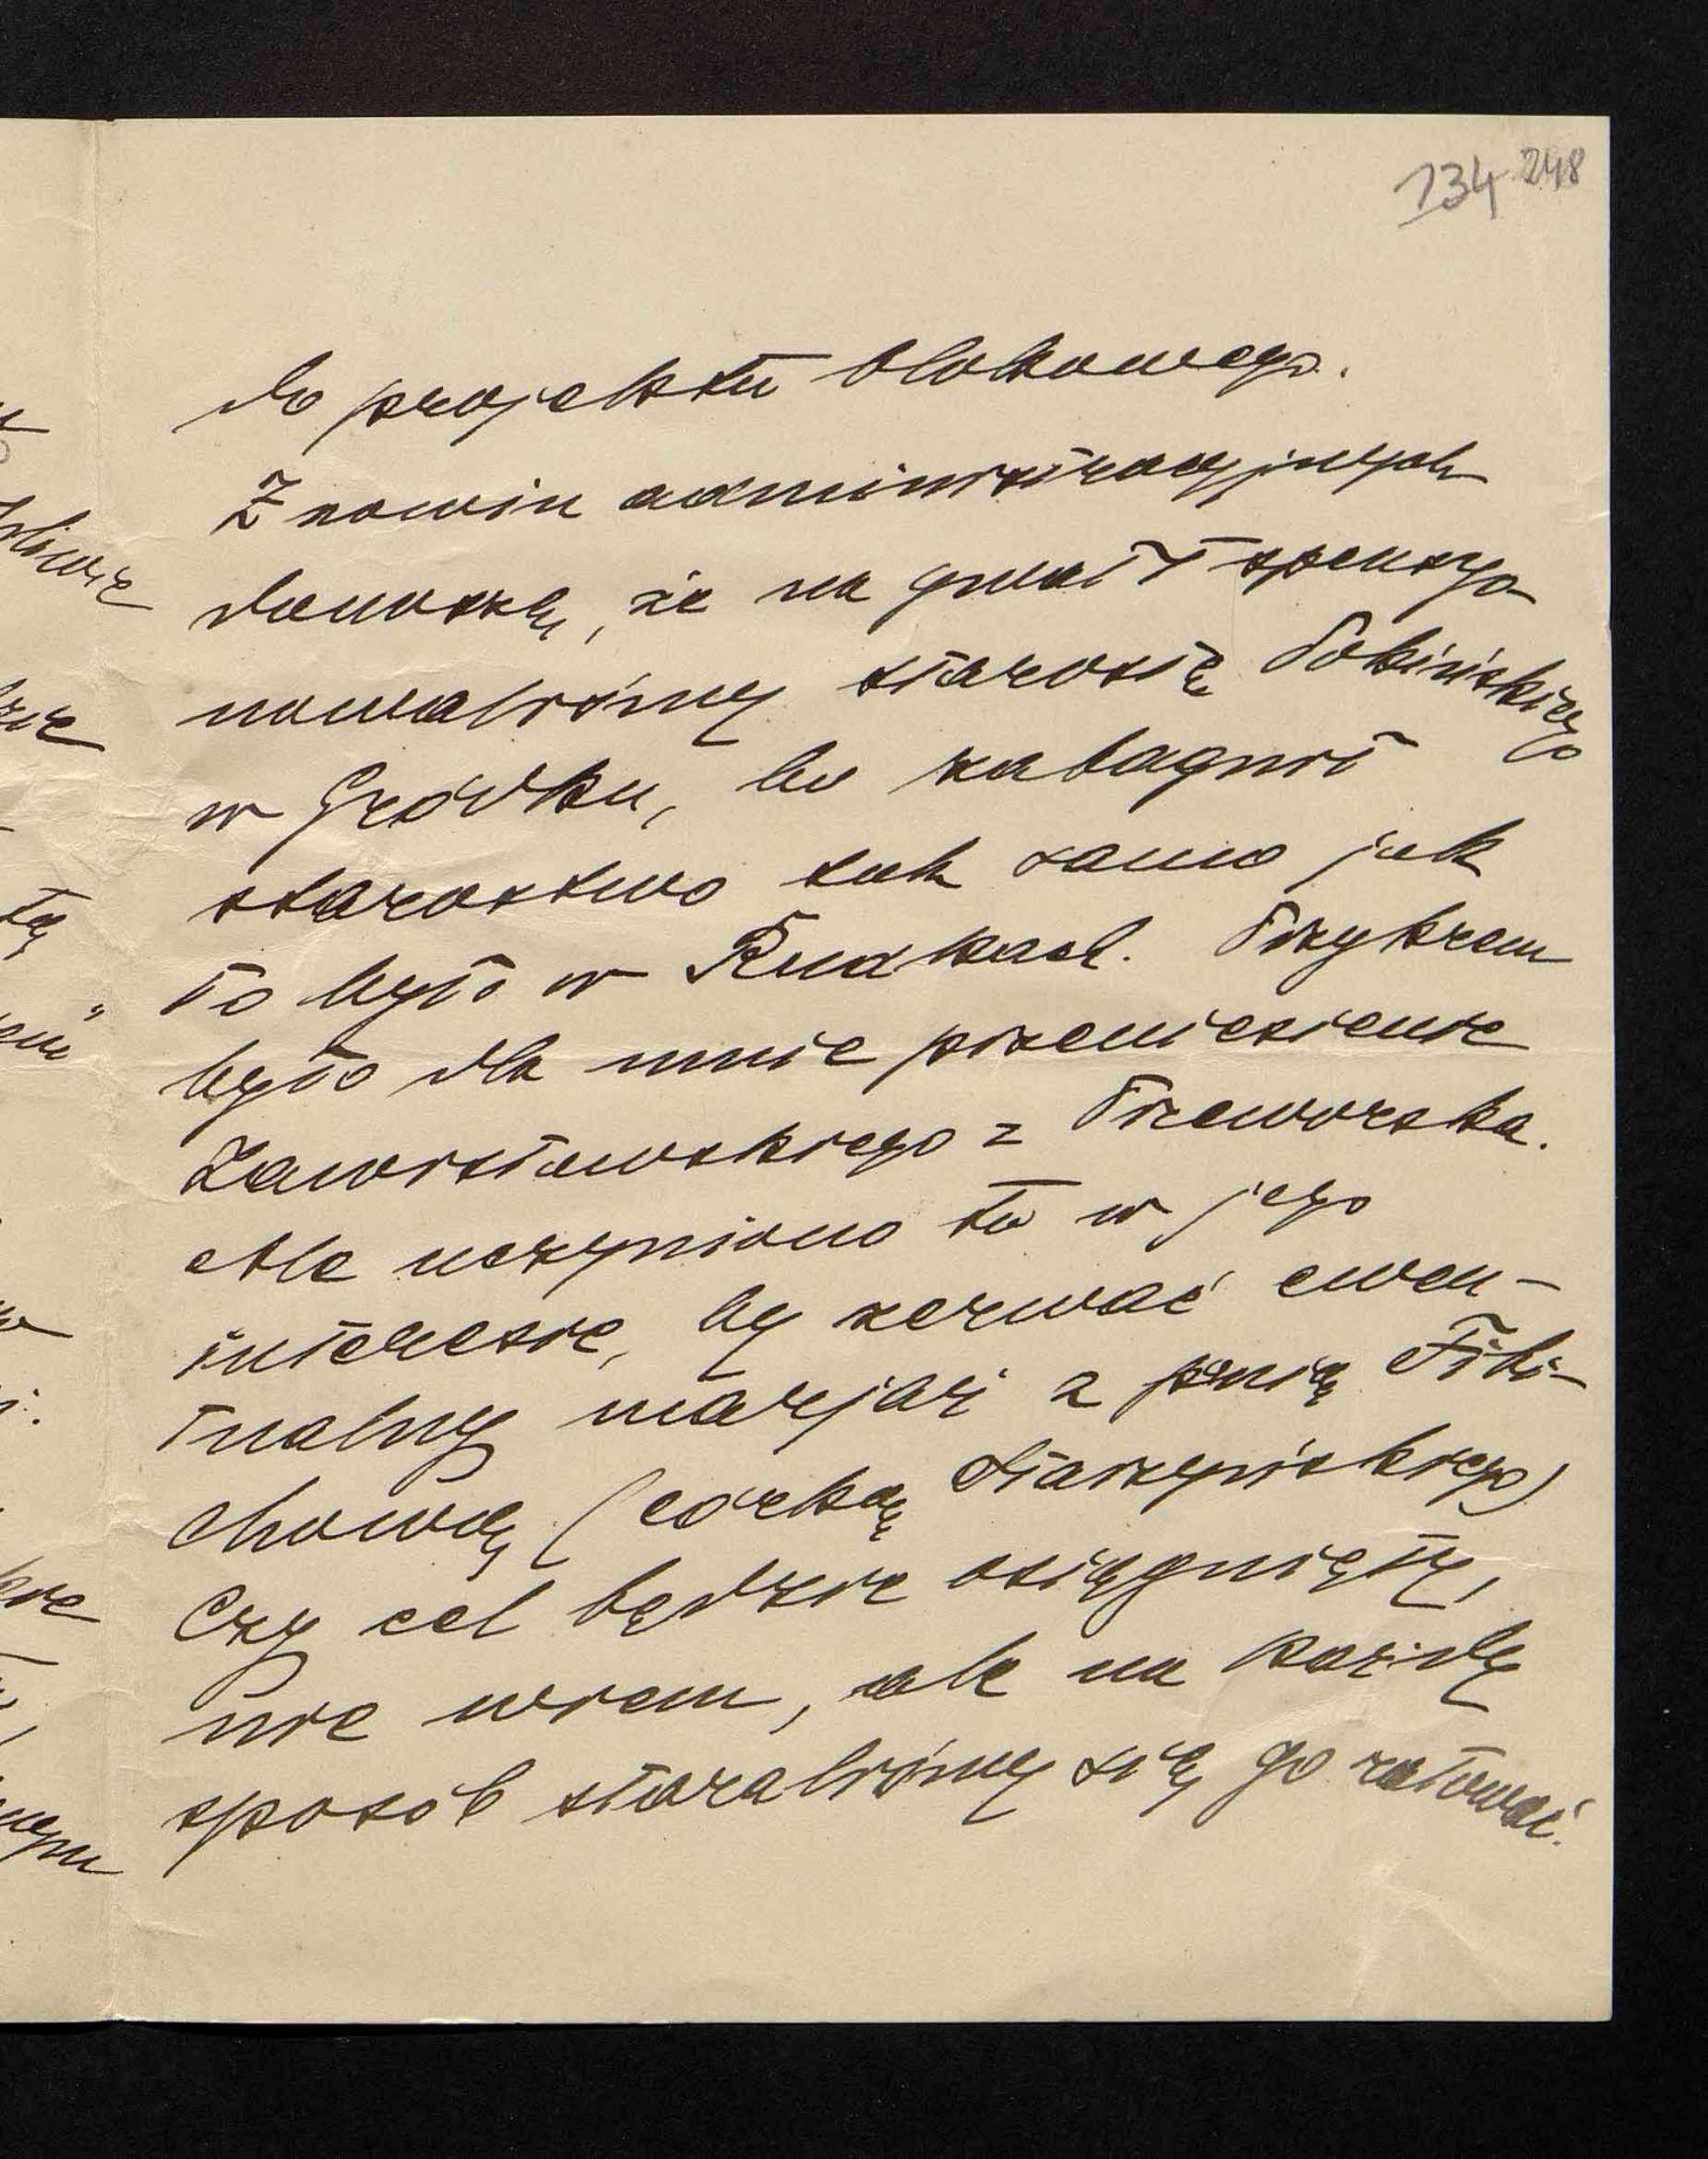 134 248
do projektu blokowego.
Z nowin administracyjnych
donoszę, że na gwałt spensyo-
nowaliśmy starostę Pokińskiego
w Gródku, bo zabagnił
starostwo tak samo jak
to było w Rudkach. Przykrem
było dla mnie przeniesienie
Zawistowskiego z Przeworska.
Ale uczyniono to w jego
interesie, by zerwać ewen-
tualny marjaż z panią Fibi-
chową (córką Starzyńskiego)
Czy cel będzie osiągnięty,
nie wiem, ale na każdy
sposób staraliśmy się go ratować.